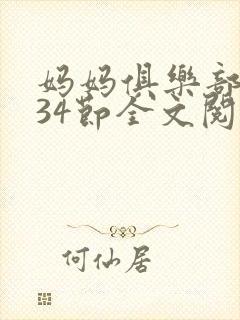 妈妈俱樂部
34節全文閱
何仙居